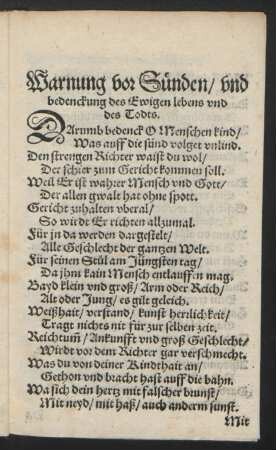 Warnung vor Sünden/ vnd
bedenckung des Ewigen lebens vnd
des Todts.
DArumb bedenck O Menschen kind/
Was auff die sünd volget vnlind.
Den strengen Richter waist du wol/
Der schier zum Gericht kommen soll.
Weil Er ist wahrer Mensch vnd Gott/
Der allen gwalt hat ohne spott.
Gericht zuhalten vberal/
So wirdt Er richten allzumal.
Für jn da werden dargestelt/
Alle Geschlecht der gantzen Welt.
Für seinen Stůl am Jüngsten tag/
Da jhm kain Mensch entlauffen mag.
Bayd klein vnd groß/ Arm oder Reich/
Alt oder Jung/ es gilt geleich.
Weißhait/ verstand/ kunst herrlichkeit/
Tragt nichts nit für zur selben zeit.
Reichtum̃/ Ankunfft vnd groß Geschlecht/
Wirdt vor dem Richter gar verschmecht.
Was du von deiner Kindthait an/
Gethon vnd bracht hast auff die bahn.
Wa sich dein hertz mit falscher brunst/
Mit neyd/ mit haß/ auch anderm sunst.
Mit